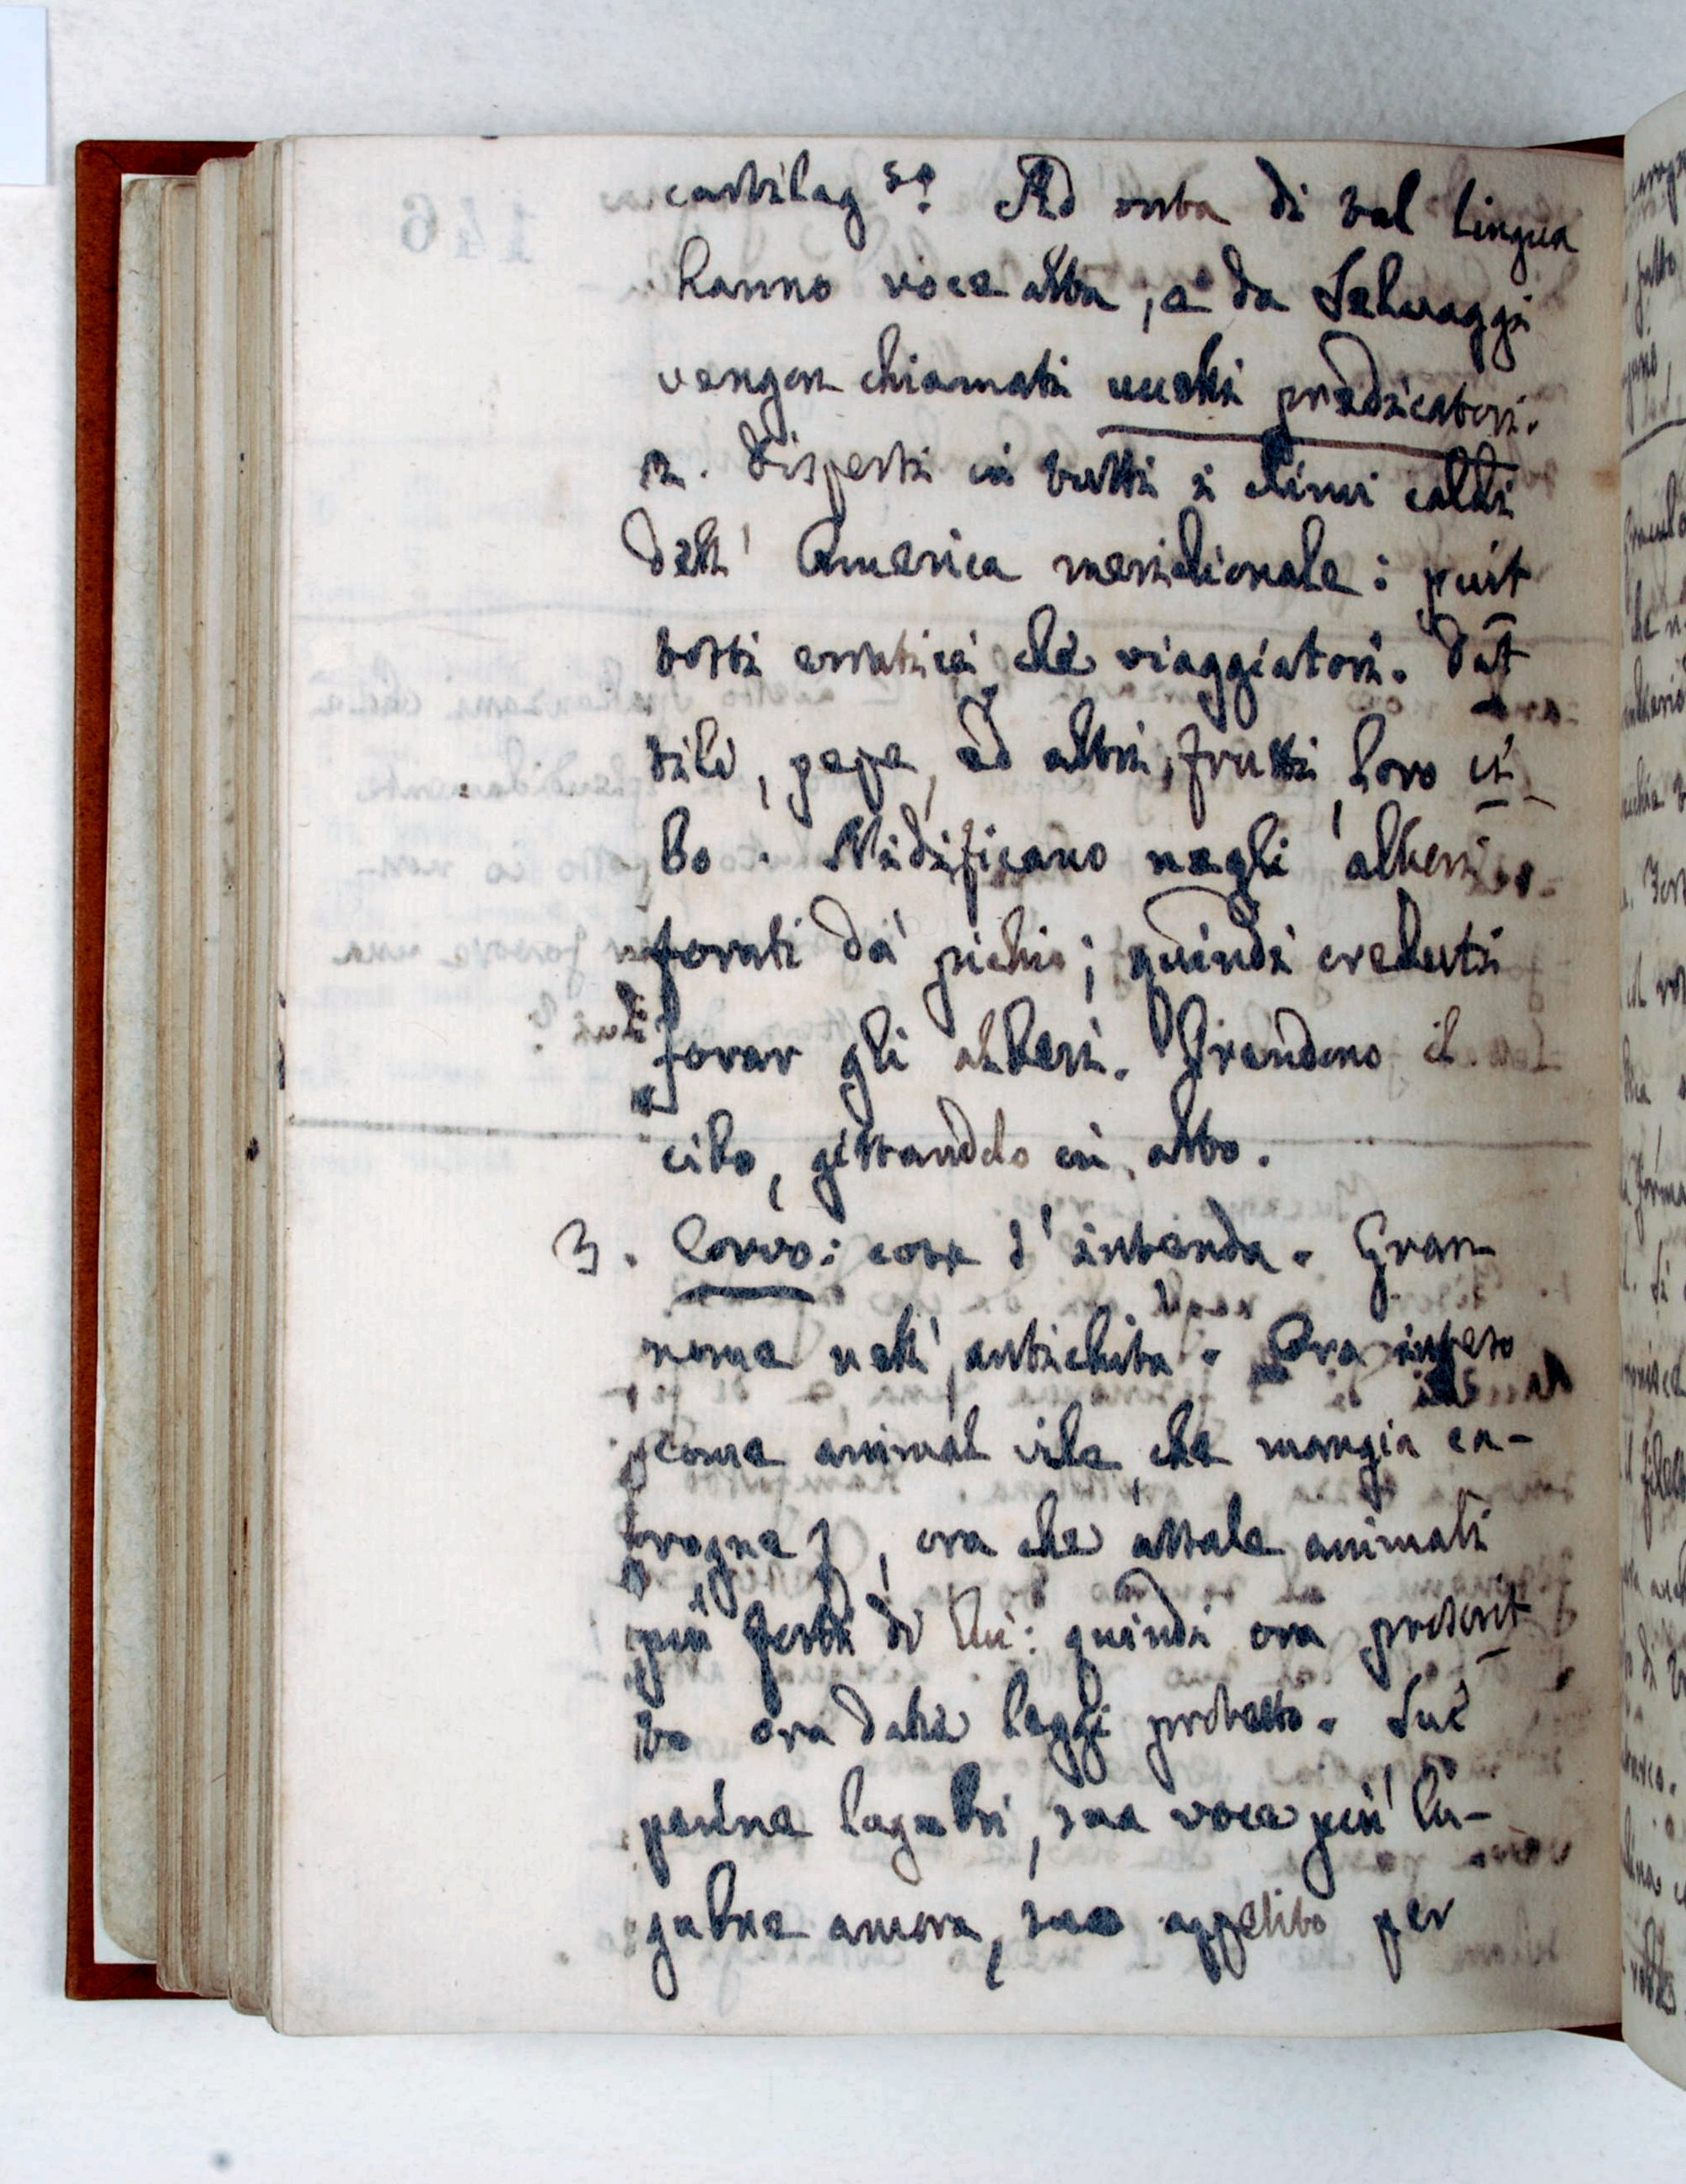 cartilag.so Ad onta di tal lingua
hanno voce alta, e da Selvaggi
vengon chiamati uccelli predicatori.
2. Dispersi in tutti i climi caldi
dell' America meridionale: piut
tosto erratici che viaggiatori. Dat
tili, pepe, ed altri frutti loro ci
bo. Nidificano negli alberi
forati da' pichi; quindi creduti
forar gli alberi. Prendono il
cibo, gittandolo in alto.
3. Corvo: cosa s' intenda. Gran
nome nell' antichità. Ora inteso
come animal vile che mangia ca-
rogne, ora che assale animali
più forti di lui: quindi ora proscrit
to ora dalle leggi protetto. Sue
penne lugubri, sua voce più lu-
gubre ancora, suo appetito per